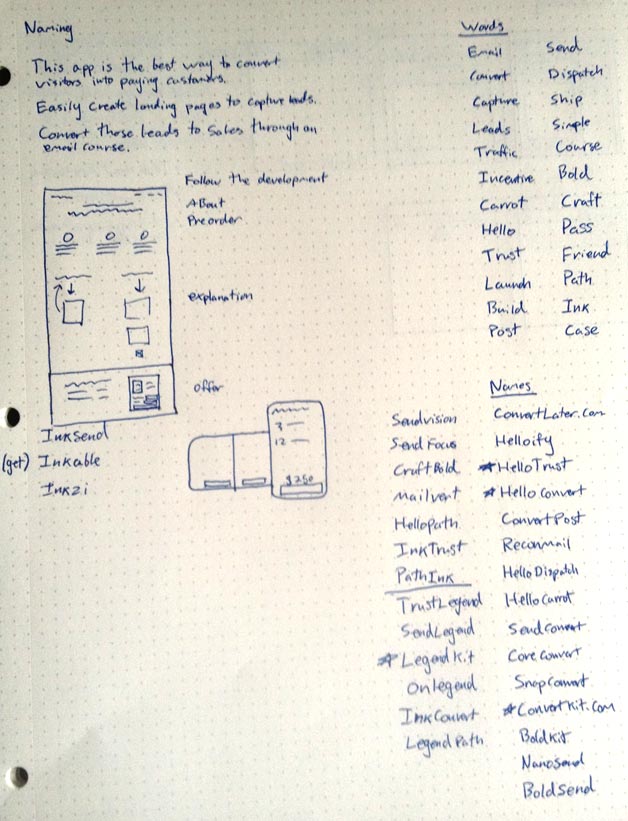 Naming
This app is the best way to convert
visitors into paying customers.
Easily create landing pages to capture leads.
Convert those leads to sales through an
email course.
Follow the development
About
Preorder
explanation
offer
3
12
$250
InkSend
(get) Inkable
Inkzi
Words
Email
Convert
Capture
Leads
Traffic
Incentive
Carrot
Hello
Trust
Launch
Build
Post
Send
Dispatch
Ship
Simple
Course
Bold
Craft
Pass
Friend
Path
Ink
Case
Names
Sendvision
Send Focus
CraftBold
Mailvert
Hellopath
InkTrust
PathInk
TrustLegend
SendLegend
* LegendKit
OnLegend
InkConvert
LegendPath
ConvertLater.com
Helloify
* HelloTrust
* Hello Convert
ConvertPost
Reconmail
Hello Dispatch
HelloCarrot
SendConvert
CoreConvert
SnapConvert
* ConvertKit.com
BoldKit
NanoSend
BoldSend